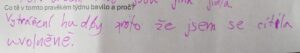 Co tě v tomto pravěkém týdnu bavilo a proč?
Vytváření hudby proto že jsem se cítila
uvolněně.